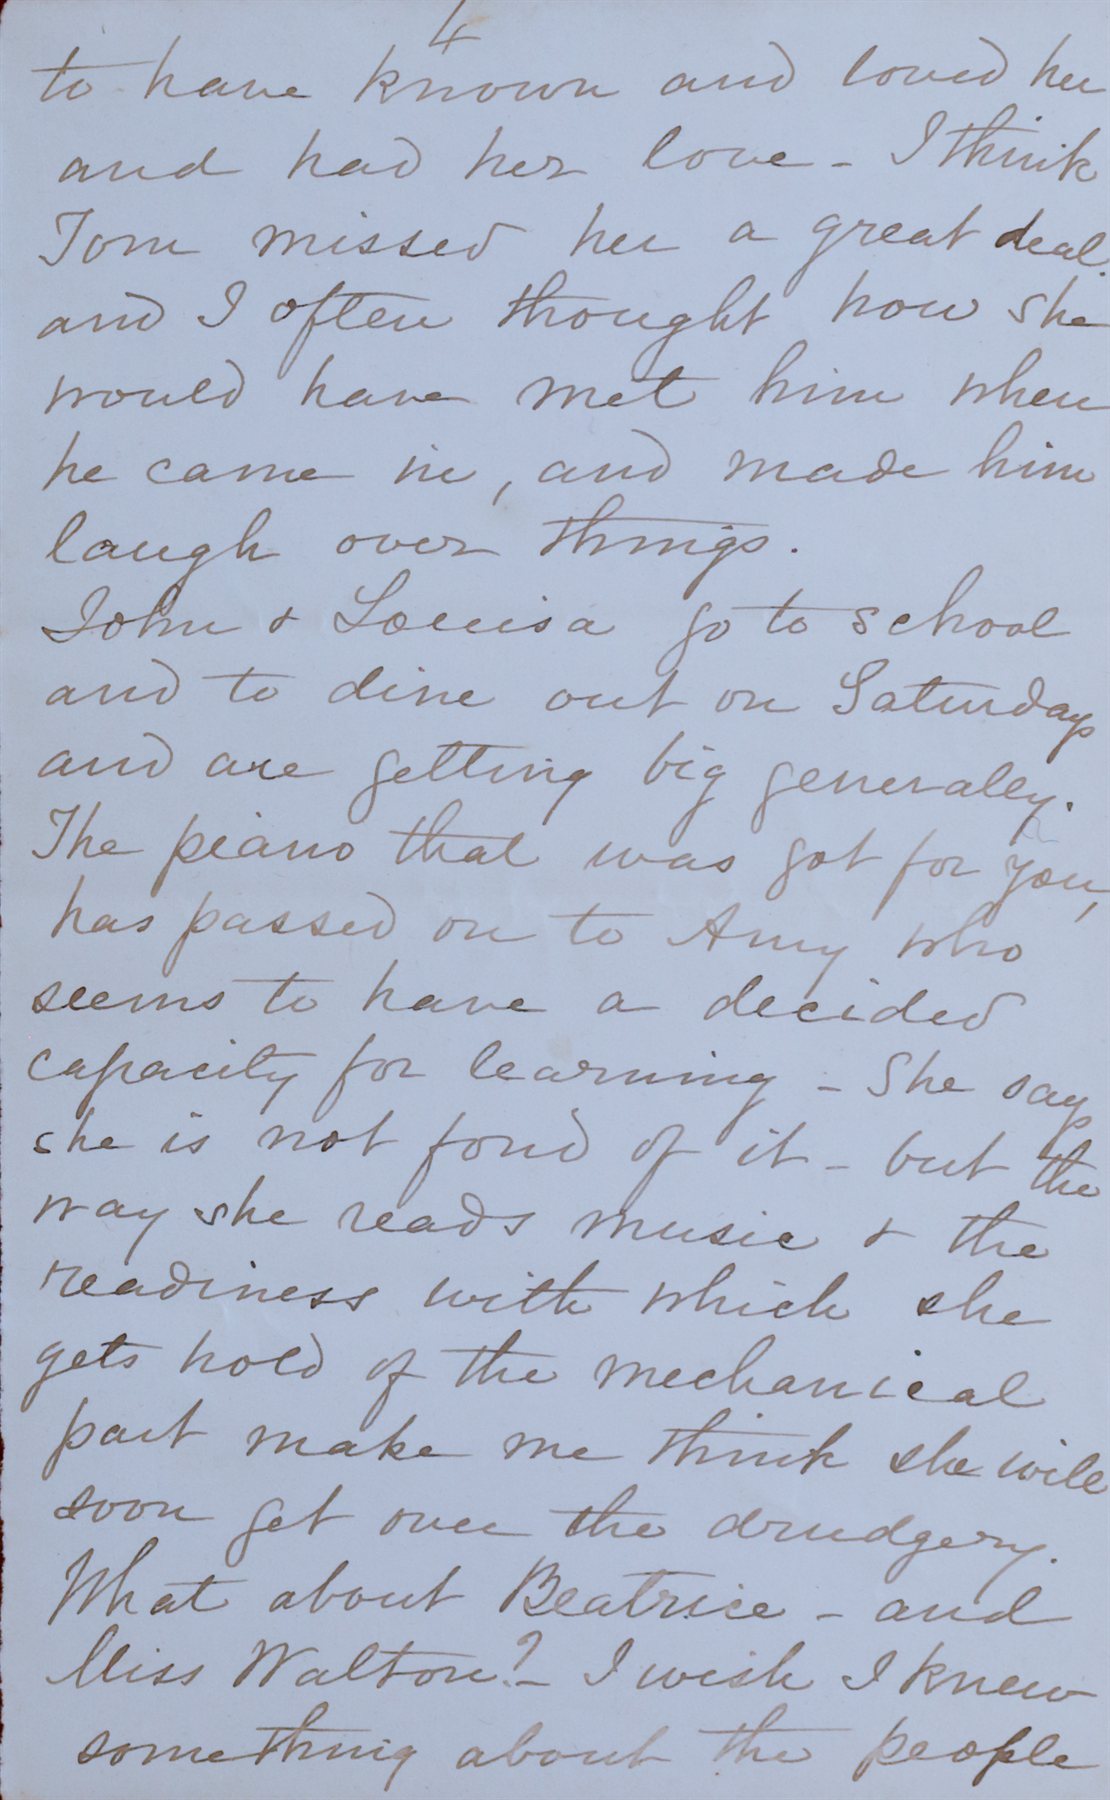 4
to have known and loved her
and had her love - I think
Tom missed her a great deal.
and I often thought how she
would have met him when
he came in, and made him
laugh over things.
John & Louisa go to school
and to dine out on Saturdays
and are getting big generally.
The piano that was got for you,
has passed on to Amy who
seems to have a decided
capacity for learning - She says
she is not fond of it - but the
way she reads music & the
readiness with which she
gets hold of the mechanical
part make me think she will
soon get over the drudgery.
What about Beatrice - and
Miss Walton? - I wish I knew
something about the people